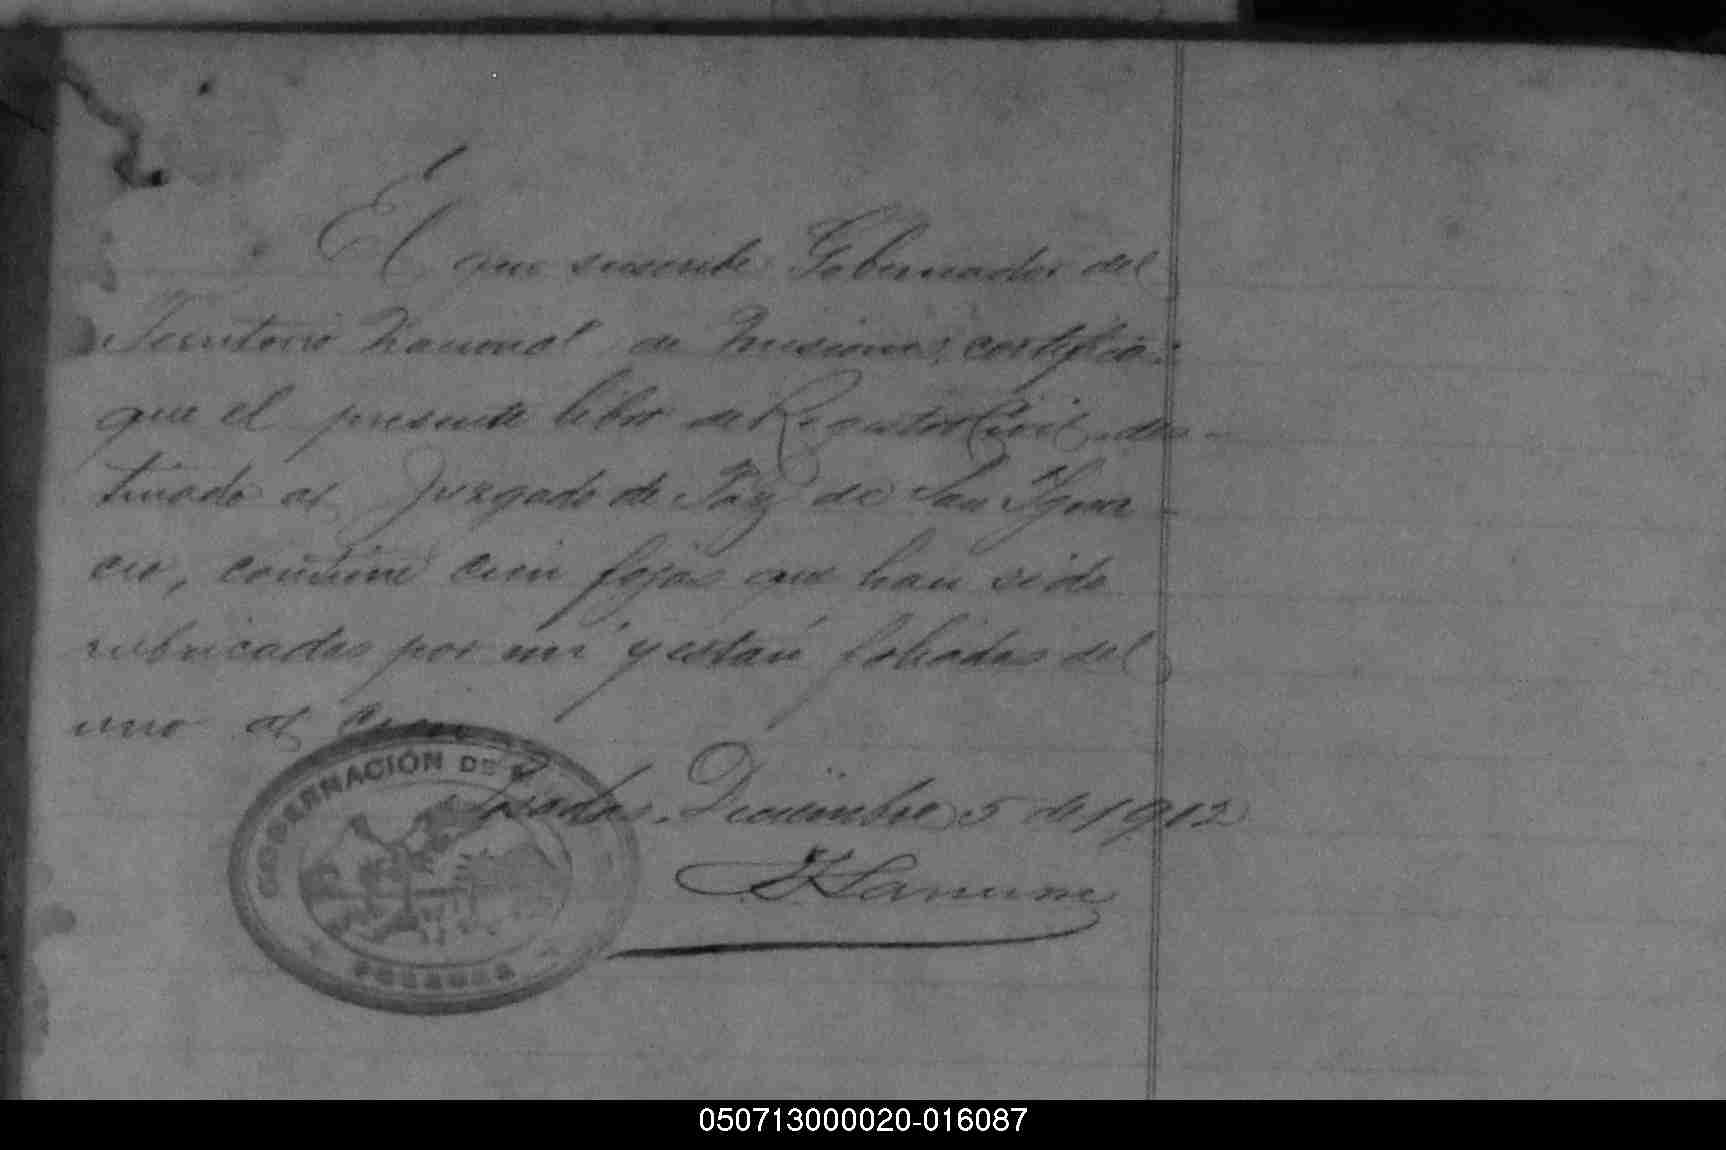 El que suscribe Gobernador del
Territorio Nacional de Misiones, certifica:
que el presente libro de Registro Civil, des-
tinado al Juzgado de Paz de San Igna-
cio, contiene cien fojas que han sido
rubricadas por mí y están foliadas del
uno al cien
Posadas, Diciembre 5 de 1912
GOBERNACIÓN DE
POSADAS
050713000020-016087